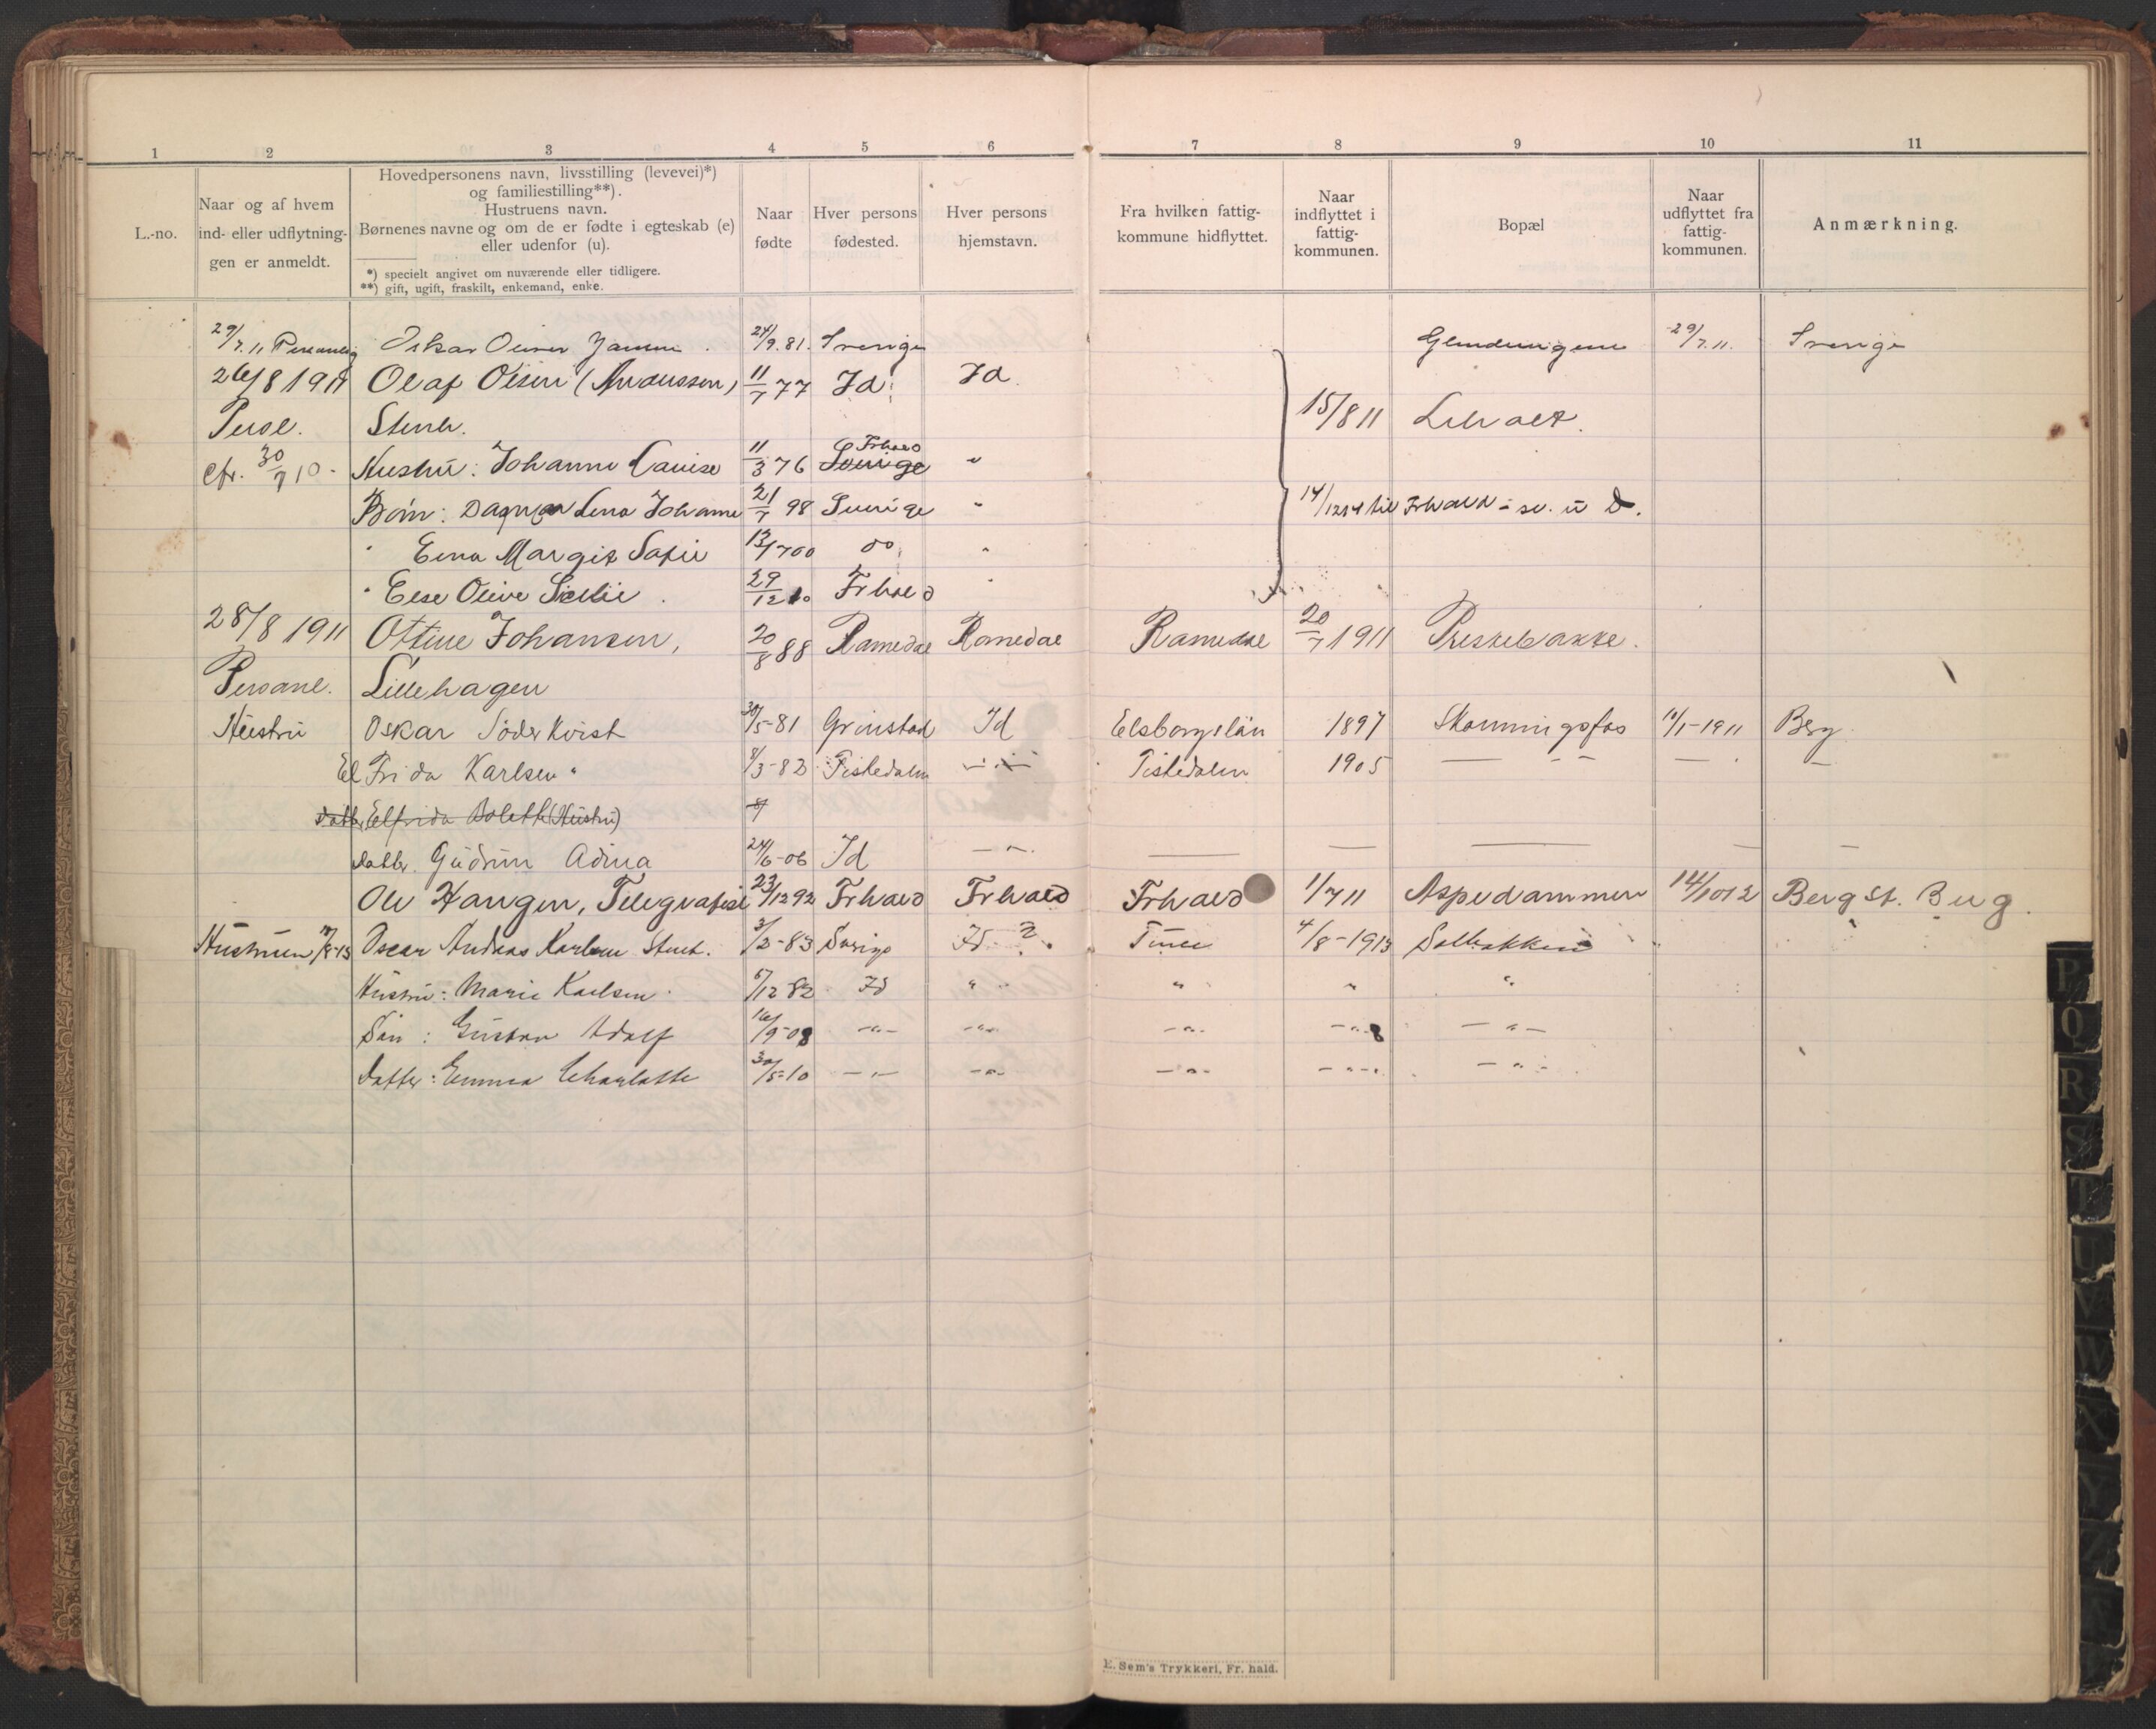 1 2 3 4 5 6 7 8 9 10 11
L.-no.
Naar og af hvem
ind- eller udflytnin-
gen er anmeldt.
Hovedpersonens navn, livsstilling (levevei)*)
og familiestilling**).
Hustruens navn.
Børnenes navne og om de er fødte i egteskab (e)
eller udenfor (u).
*) specielt angivet om nuværende eller tidligere.
**) gift, ugift, fraskilt, enkemand, enke.
Naar
fødte
Hver persons
fødested.
Hver persons
hjemstavn.
Fra hvilken fattig-
kommune hidflyttet.
Naar
indflyttet i
fattig-
kommunen.
Bopæl
Naar
udflyttet fra
fattig-
kommunen.
Anmærkning.
29/7.11 Personlig Oskar Oliver Jansen. 24/9.81. Sverige 29/7.11. Sverige
26/8 1911 Olaf Olsen (Andersson) 11/7 77 Id. Id.
Persl. Stenh. 15/8 11
cfr. 30/7 10 - Hustru: Johanne Lauise 11/3 76 Frhald Sverige "
Børn: Dagmar Lena Johanne 21/7 98 Sverige " 14/12 14 til Frhald
" Elna Margit Sofie 13/7 00 do. "
" Else Olive Sicilie. 29/12 10 Frhald "
28/8 1911 Ottine Johansen, 20/8 88 Rømedal Romedal Romedal 20/7 1911 Præstebakke.
Personl. Lillehagen
Hustru Oskar Søderkvist 30/5-81 Grinstad Id Elsborgslän 1897 Skonningsfos 10/1-1911 Berg
Elfrida Karlsen " 8/3-82 Tistedalen —"— Tistedalen 1905 — " — — —
Datter Elfrida Bolette (Hustru)
Datter Gudrun Adina 24/6-06 Id —"— — — — — —
Ole Haugen, Telegrafist 23/12 92 Frhald Frhald Frhald 1/7 11 Aspedammen 14/10 12 Berg st. Berg.
Hustruen /8-13 Oscar Andreas Karlsen Stenh. 3/2-83 Sverige Id ?. Tune 4/8-1913 Solbakken
Hustru: Marie Karlsen 5/12 82 Id " " " "
Søn: Gustav Adolf 16/9-08 —"— —"— —"— —"— 8 —"—
Datter: Emma Charlotte 30/5-10 —"— —"— —"— —"— —"—
E. Sem's Trykkeri, Fr. hald.
P
Q
R
S
T
U
V
W
X
Y
Z